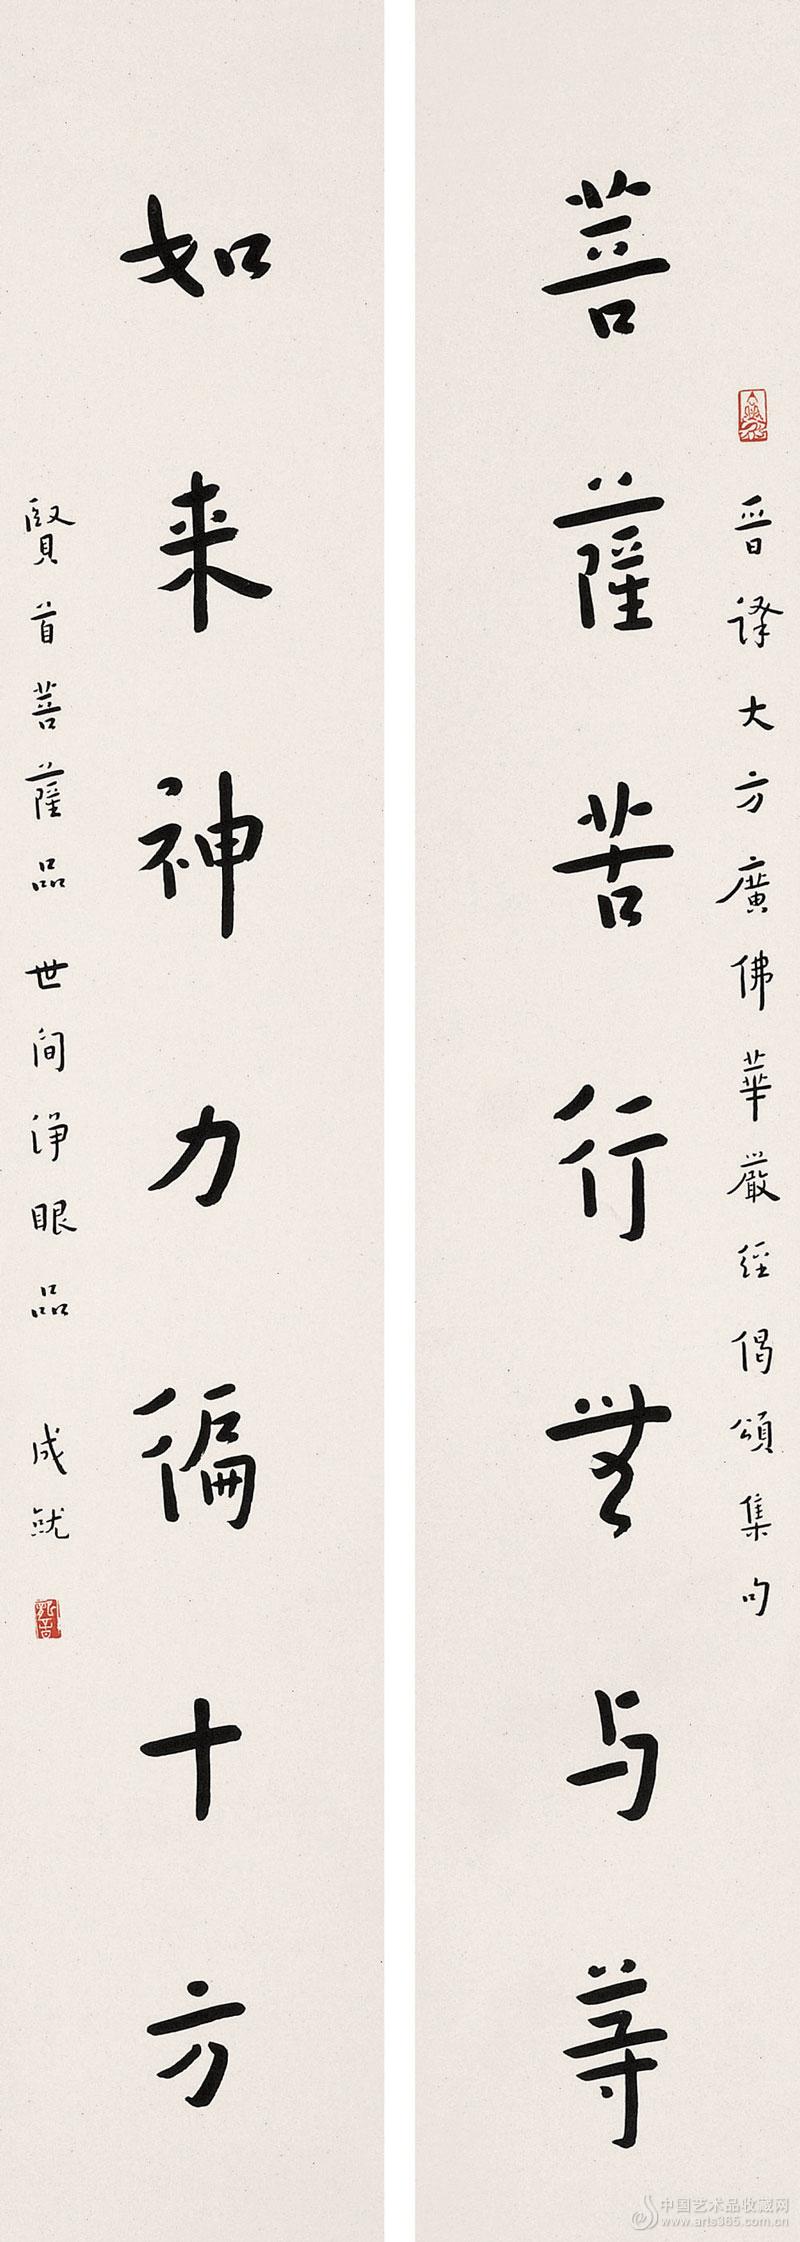 晋譯大方廣佛華嚴經偈頌集句
菩薩苦行無与等
如来神力徧十方
賢首菩薩品 世间淨眼品 成就
中国艺术品收藏网
www.arts365.com.cn